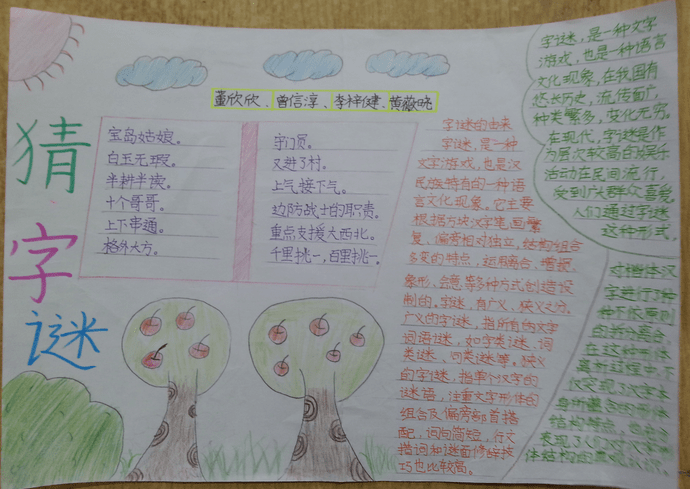 猜字谜
董欣欣、曾信淳、李梓健、黄薇晓
宝岛姑娘。
白玉无瑕。
半耕半读。
十个哥哥。
上下串通。
格外大方。
守门员。
又进了村。
上气接下气。
边防战士的职责。
重点支援大西北。
千里挑一,百里挑一。
字谜的由来
字谜,是一种
文字游戏,也是汉
民族特有的一种语
言文化现象。它主要
根据方块汉字笔画繁
复、偏旁相对独立,结构组合
多变的特点,运用离合、增损、
象形、会意等多种方式创造设
制的。字谜,有广义、狭义之分。
广义的字谜,指所有的文字
词语谜,如字类谜、词
类谜、句类谜等。狭义
的字谜,指单个汉字的
谜语,注重文字形体的
组合及偏旁部首搭
配,词句简短,行文
措词和谜面修辞技
巧也比较高。
字谜,是一种文字
游戏,也是一种语言
文化现象,在我国有
悠长历史,流传面广,
种类繁多,变化无穷。
在现代,字谜是作
为层次较高的娱乐
活动在民间流行,
受到广大群众喜爱。
人们通过字谜
这种形式,
对楷体汉
字进行了多
种下依原则
的拆分离合,
在这种形体
离析过程中,不
仅表现了汉字本
身所蕴含的形体
结构特点,也较好
表现了人们对汉字形
体结构的